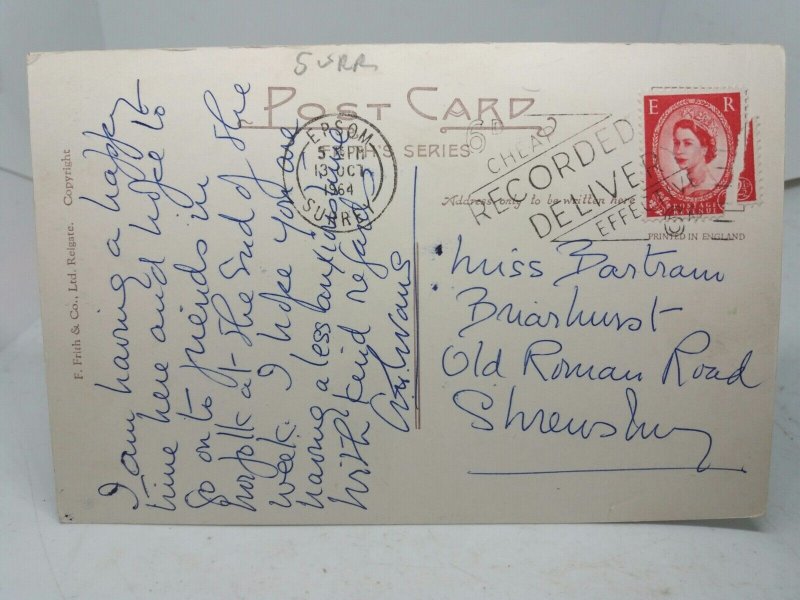 SURR
POST CARD
FRITH'S SERIES
EPSOM
13 OCT
1964
SURREY
6D
CHEAP
RECORDED
DELIVE
EFFE
E R
POSTAGE
REVENUE
Address only to be written here
PRINTED IN ENGLAND
F. Frith & Co., Ltd. Reigate. Copyright
I am having a happy
time here and hope to
go on to friends in
Norfolk at the end of the
week. I hope you are
having a less
with kind regards
Miss Bartram
Briarhurst
Old Roman Road
Shrewsbury